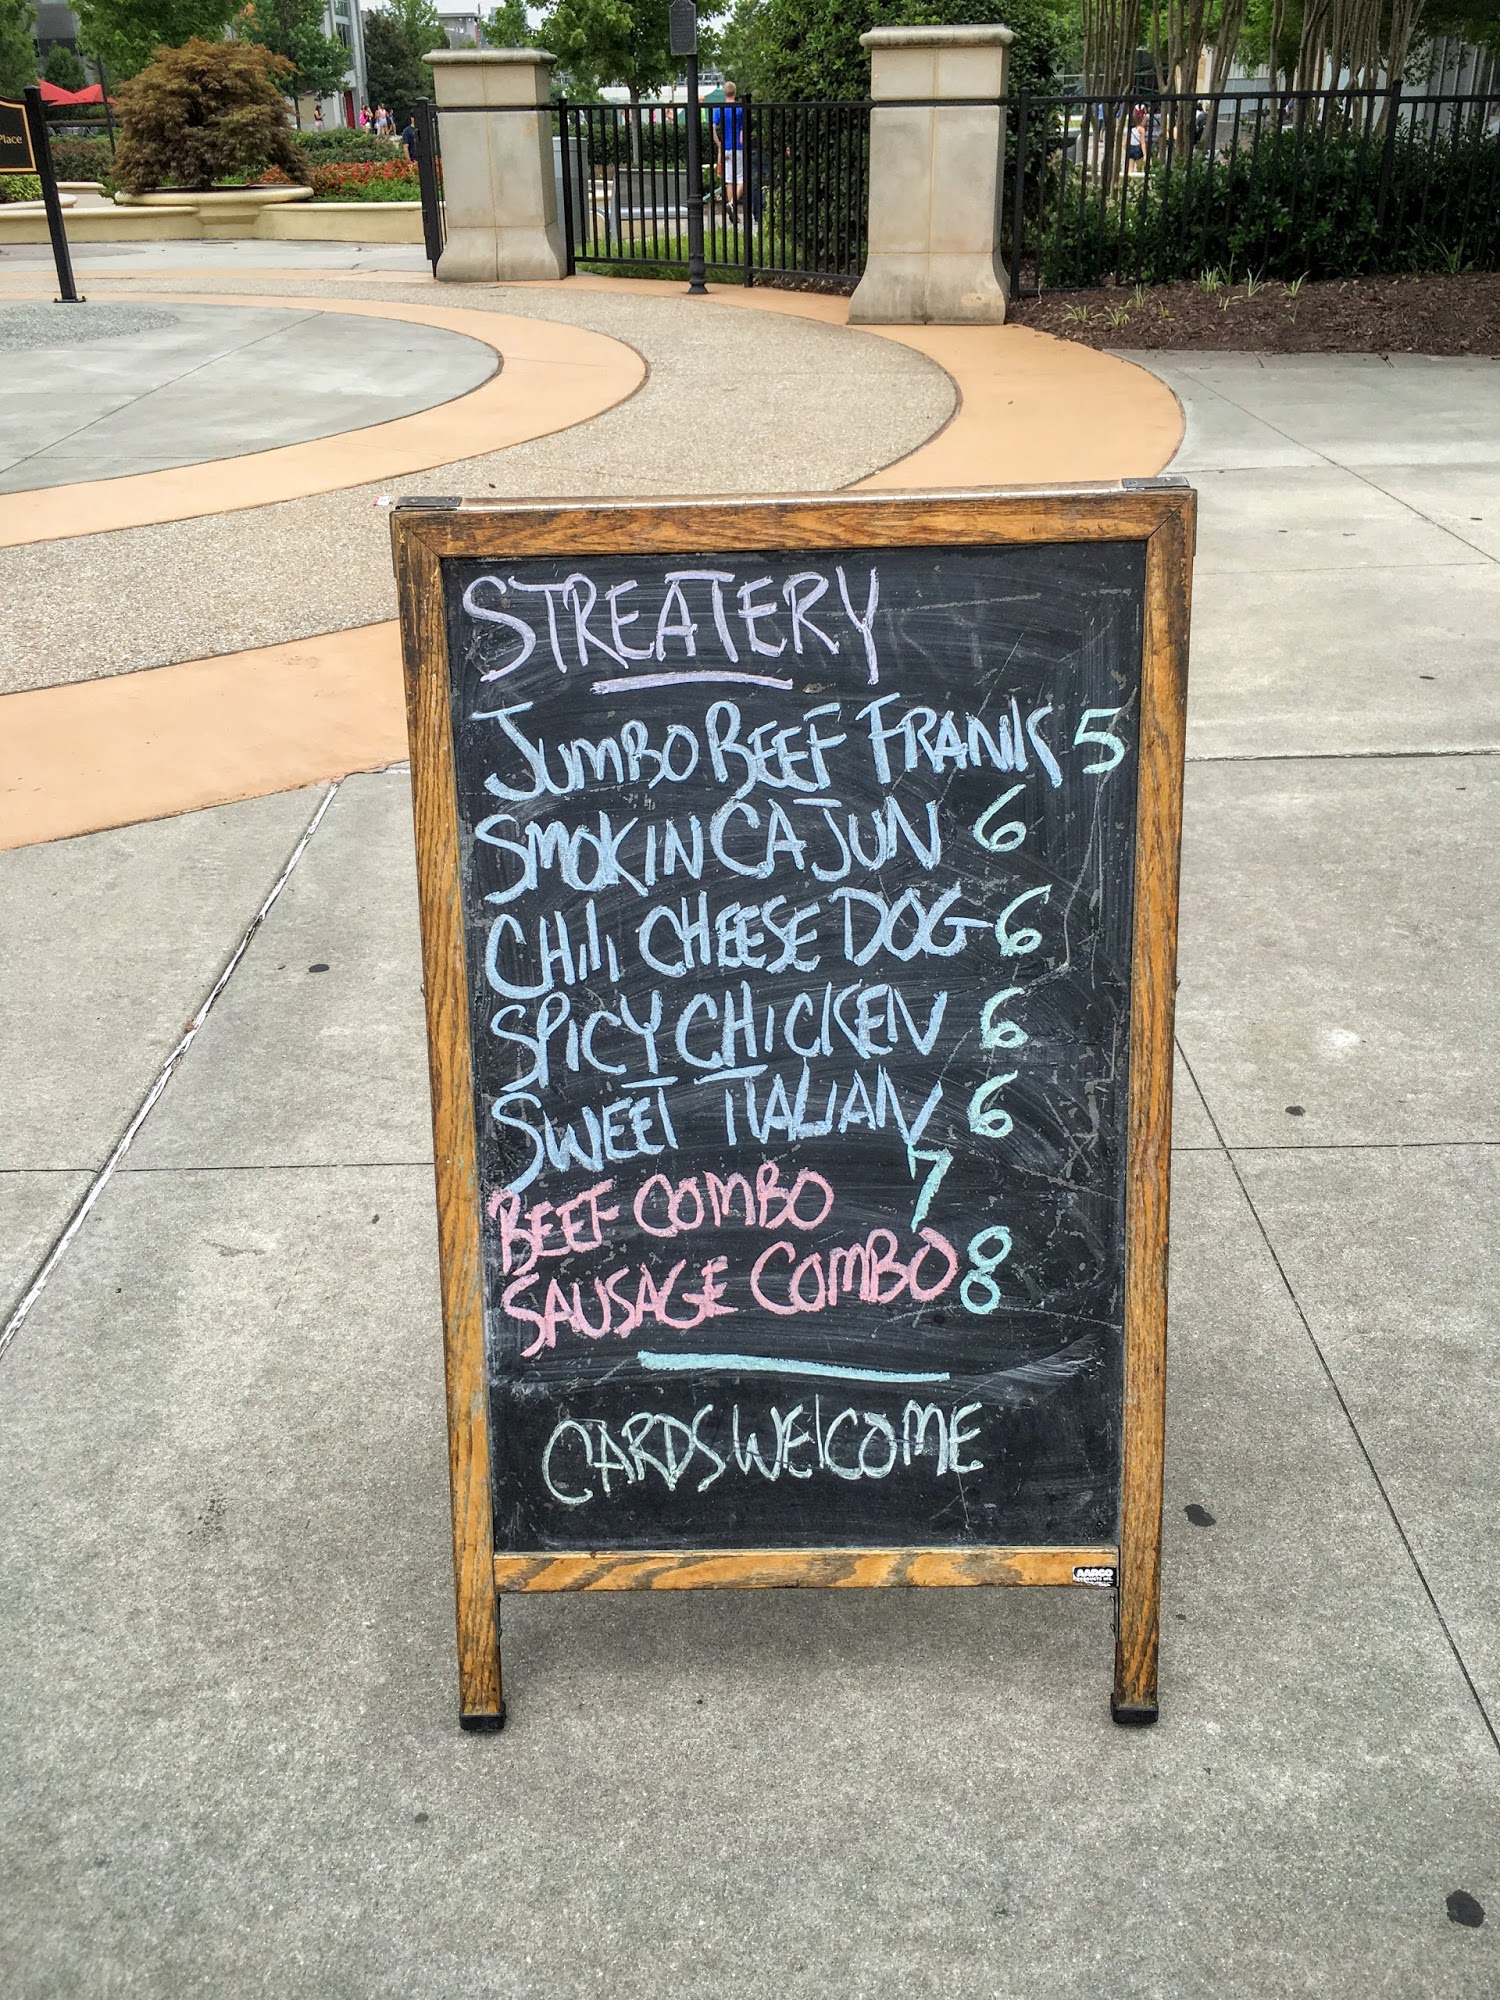 Place
STREATERY
JUMBO BEEF FRANK 5
SMOKIN CAJUN 6
CHili CHEESE DOG 6
SPICY CHICKEN 6
SWEET ITALIAN 6
BEEF COMBO 7
SAUSAGE COMBO 8
CARDS WElCOME
AARCO